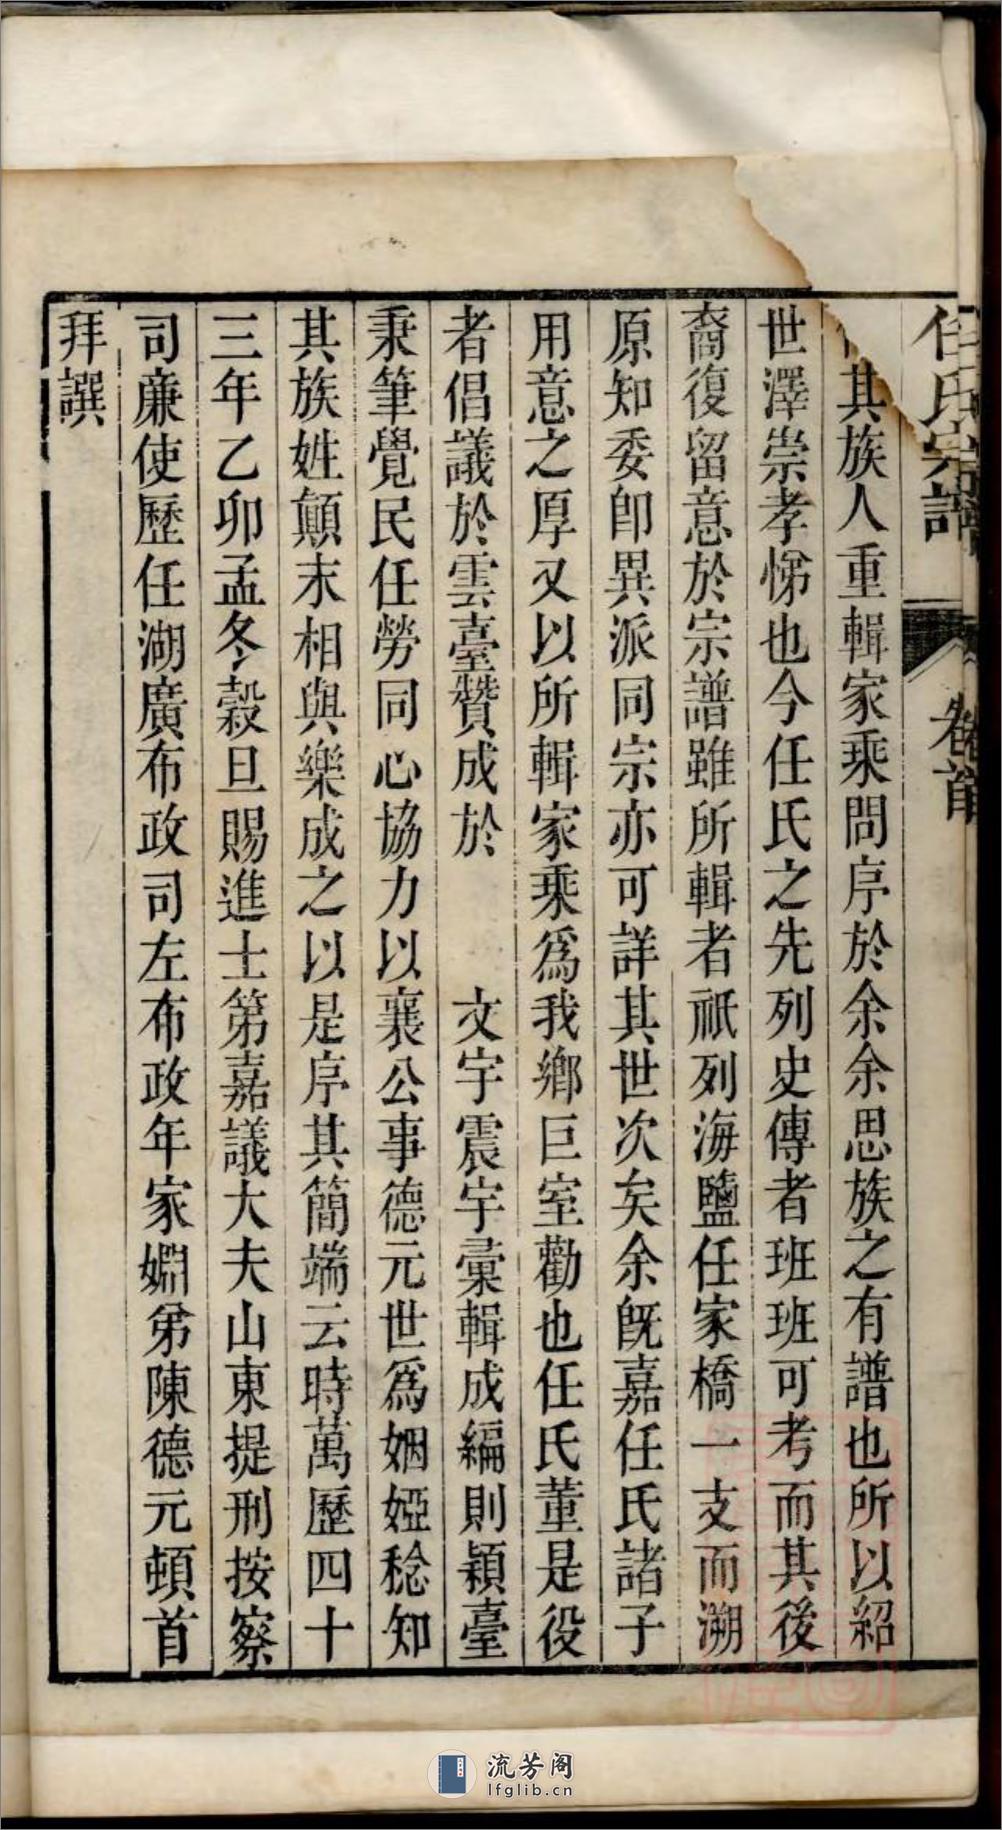 任氏宗譜
卷首
其族人重輯家乘問序於余余思族之有譜也所以紹
世澤崇孝悌也今任氏之先列史傳者班班可考而其後
裔復留意於宗譜雖所輯者祇列海鹽任家橋一支而溯
原知委卽異派同宗亦可詳其世次矣余旣嘉任氏諸子
用意之厚又以所輯家乘爲我鄉巨室勸也任氏董是役
者倡議於雲臺贊成於 文宇震宇彙輯成編則穎臺
秉筆覺民任勞同心協力以襄公事德元世爲姻婭稔知
其族姓顛末相與樂成之以是序其簡端云時萬歷四十
三年乙卯孟冬穀旦賜進士第嘉議大夫山東提刑按察
司廉使歷任湖廣布政司左布政年家婣弟陳德元頓首
拜譔
流芳阁
lfglib.cn